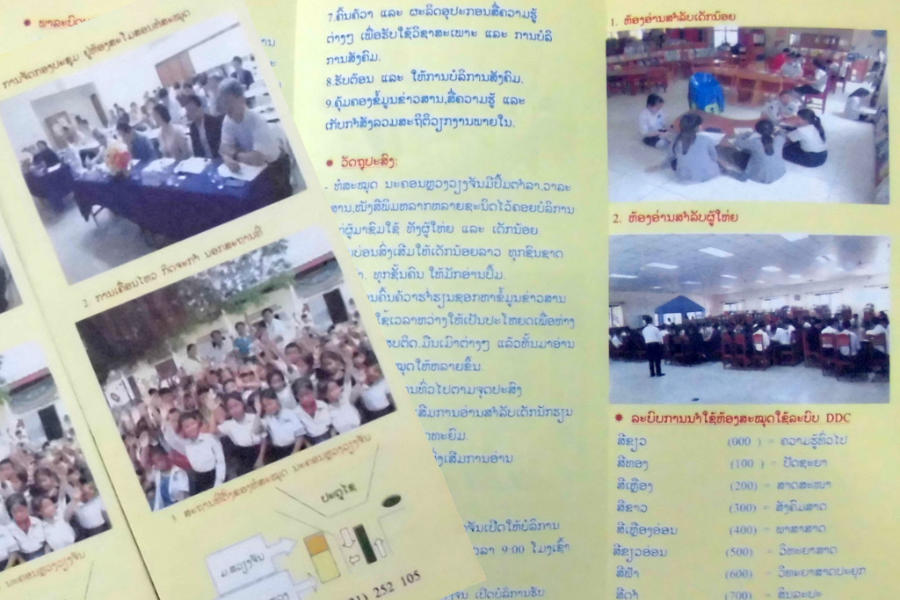 ການຈັດກອງປະຊຸມ ຢູ່ຫ້ອງສະໂມສອນຫໍສະໝຸດ
2. ການເຄື່ອນໄຫວ ກິດຈະກຳ ນອກສະຖານທີ່
3. ສະຖານທີ່ຕັ້ງຂອງຫໍສະໝຸດ ນະຄອນຫຼວງວຽງຈັນ
ປະຕູໄຊ
252 105
7.ຄົ້ນຄ້ວາ ແລະ ຜະລິດອຸປະກອນສື່ຄວາມຮູ້
ຕ່າງໆ ເພື່ອຮັບໃຊ້ວິຊາສະເພາະ ແລະ ການບໍລິ
ການສັງຄົມ.
8.ຮັບຕ້ອນ ແລະ ໃຫ້ການບໍລິການສັງຄົມ.
9.ຄຸ້ມຄອງຂໍ້ມູນຂ່າວສານ,ສື່ຄວາມຮູ້ ແລະ
ເກັບກຳສັງລວມສະຖິຕິວຽກງານພາຍໃນ.
ວັດຖຸປະສົງ:
- ຫໍສະໝຸດ ນະຄອນຫຼວງວຽງຈັນມີປຶ້ມຕຳລາ,ວາລະ
ສານ,ໜັງສືພິມຫລາກຫລາຍຊະນິດໄວ້ຄອຍບໍລິການ
ຜູ້ມາຊົມໃຊ້ ທັງຜູ້ໃຫຍ່ ແລະ ເດັກນ້ອຍ
ສົ່ງເສີມໃຫ້ເດັກນ້ອຍລາວ ທຸກຊົນຊາດ
ທຸກຊັ້ນຄົນ ໃຫ້ມັກອ່ານປຶ້ມ.
ຄົ້ນຄ້ວາຮ່ຳຮຽນຊອກຫາຂໍ້ມູນຂ່າວສານ
ໃຊ້ເວລາຫວ່າງໃຫ້ເປັນປະໂຫຍດເພື່ອຫ່າງ
ມຶນເມົາຕ່າງໆ ແລ້ວຫັນມາອ່ານ
ໃຫ້ຫລາຍຂຶ້ນ.
ທົ່ວໄປຕາມຈຸດປະສົງ
ການອ່ານສຳລັບເດັກນັກຮຽນ
ການອ່ານ
ເປີດໃຫ້ບໍລິການ
9:00 ໂມງເຊົ້າ
ເປີດບໍລິການຮັບ
1. ຫ້ອງອ່ານສຳລັບເດັກນ້ອຍ
2. ຫ້ອງອ່ານສຳລັບຜູ້ໃຫຍ່
ລະບົບການນຳໃຊ້ຫ້ອງສະໝຸດໃຊ້ລະບົບ DDC
ສີຂຽວ (000 ) = ຄວາມຮູ້ທົ່ວໄປ
ສີທອງ (100 ) = ປັດຊະຍາ
ສີເຫຼືອງ (200) = ສາດສະໜາ
ສີຂາວ (300) = ສັງຄົມສາດ
ສີເຫຼືອງອ່ອນ (400) = ພາສາສາດ
ສີຂຽວອ່ອນ (500) = ວິທະຍາສາດ
ສີຟ້າ (600) = ວິທະຍາສາດປະຍຸກ
ສີດຳ (700) = ສິນລະປະ